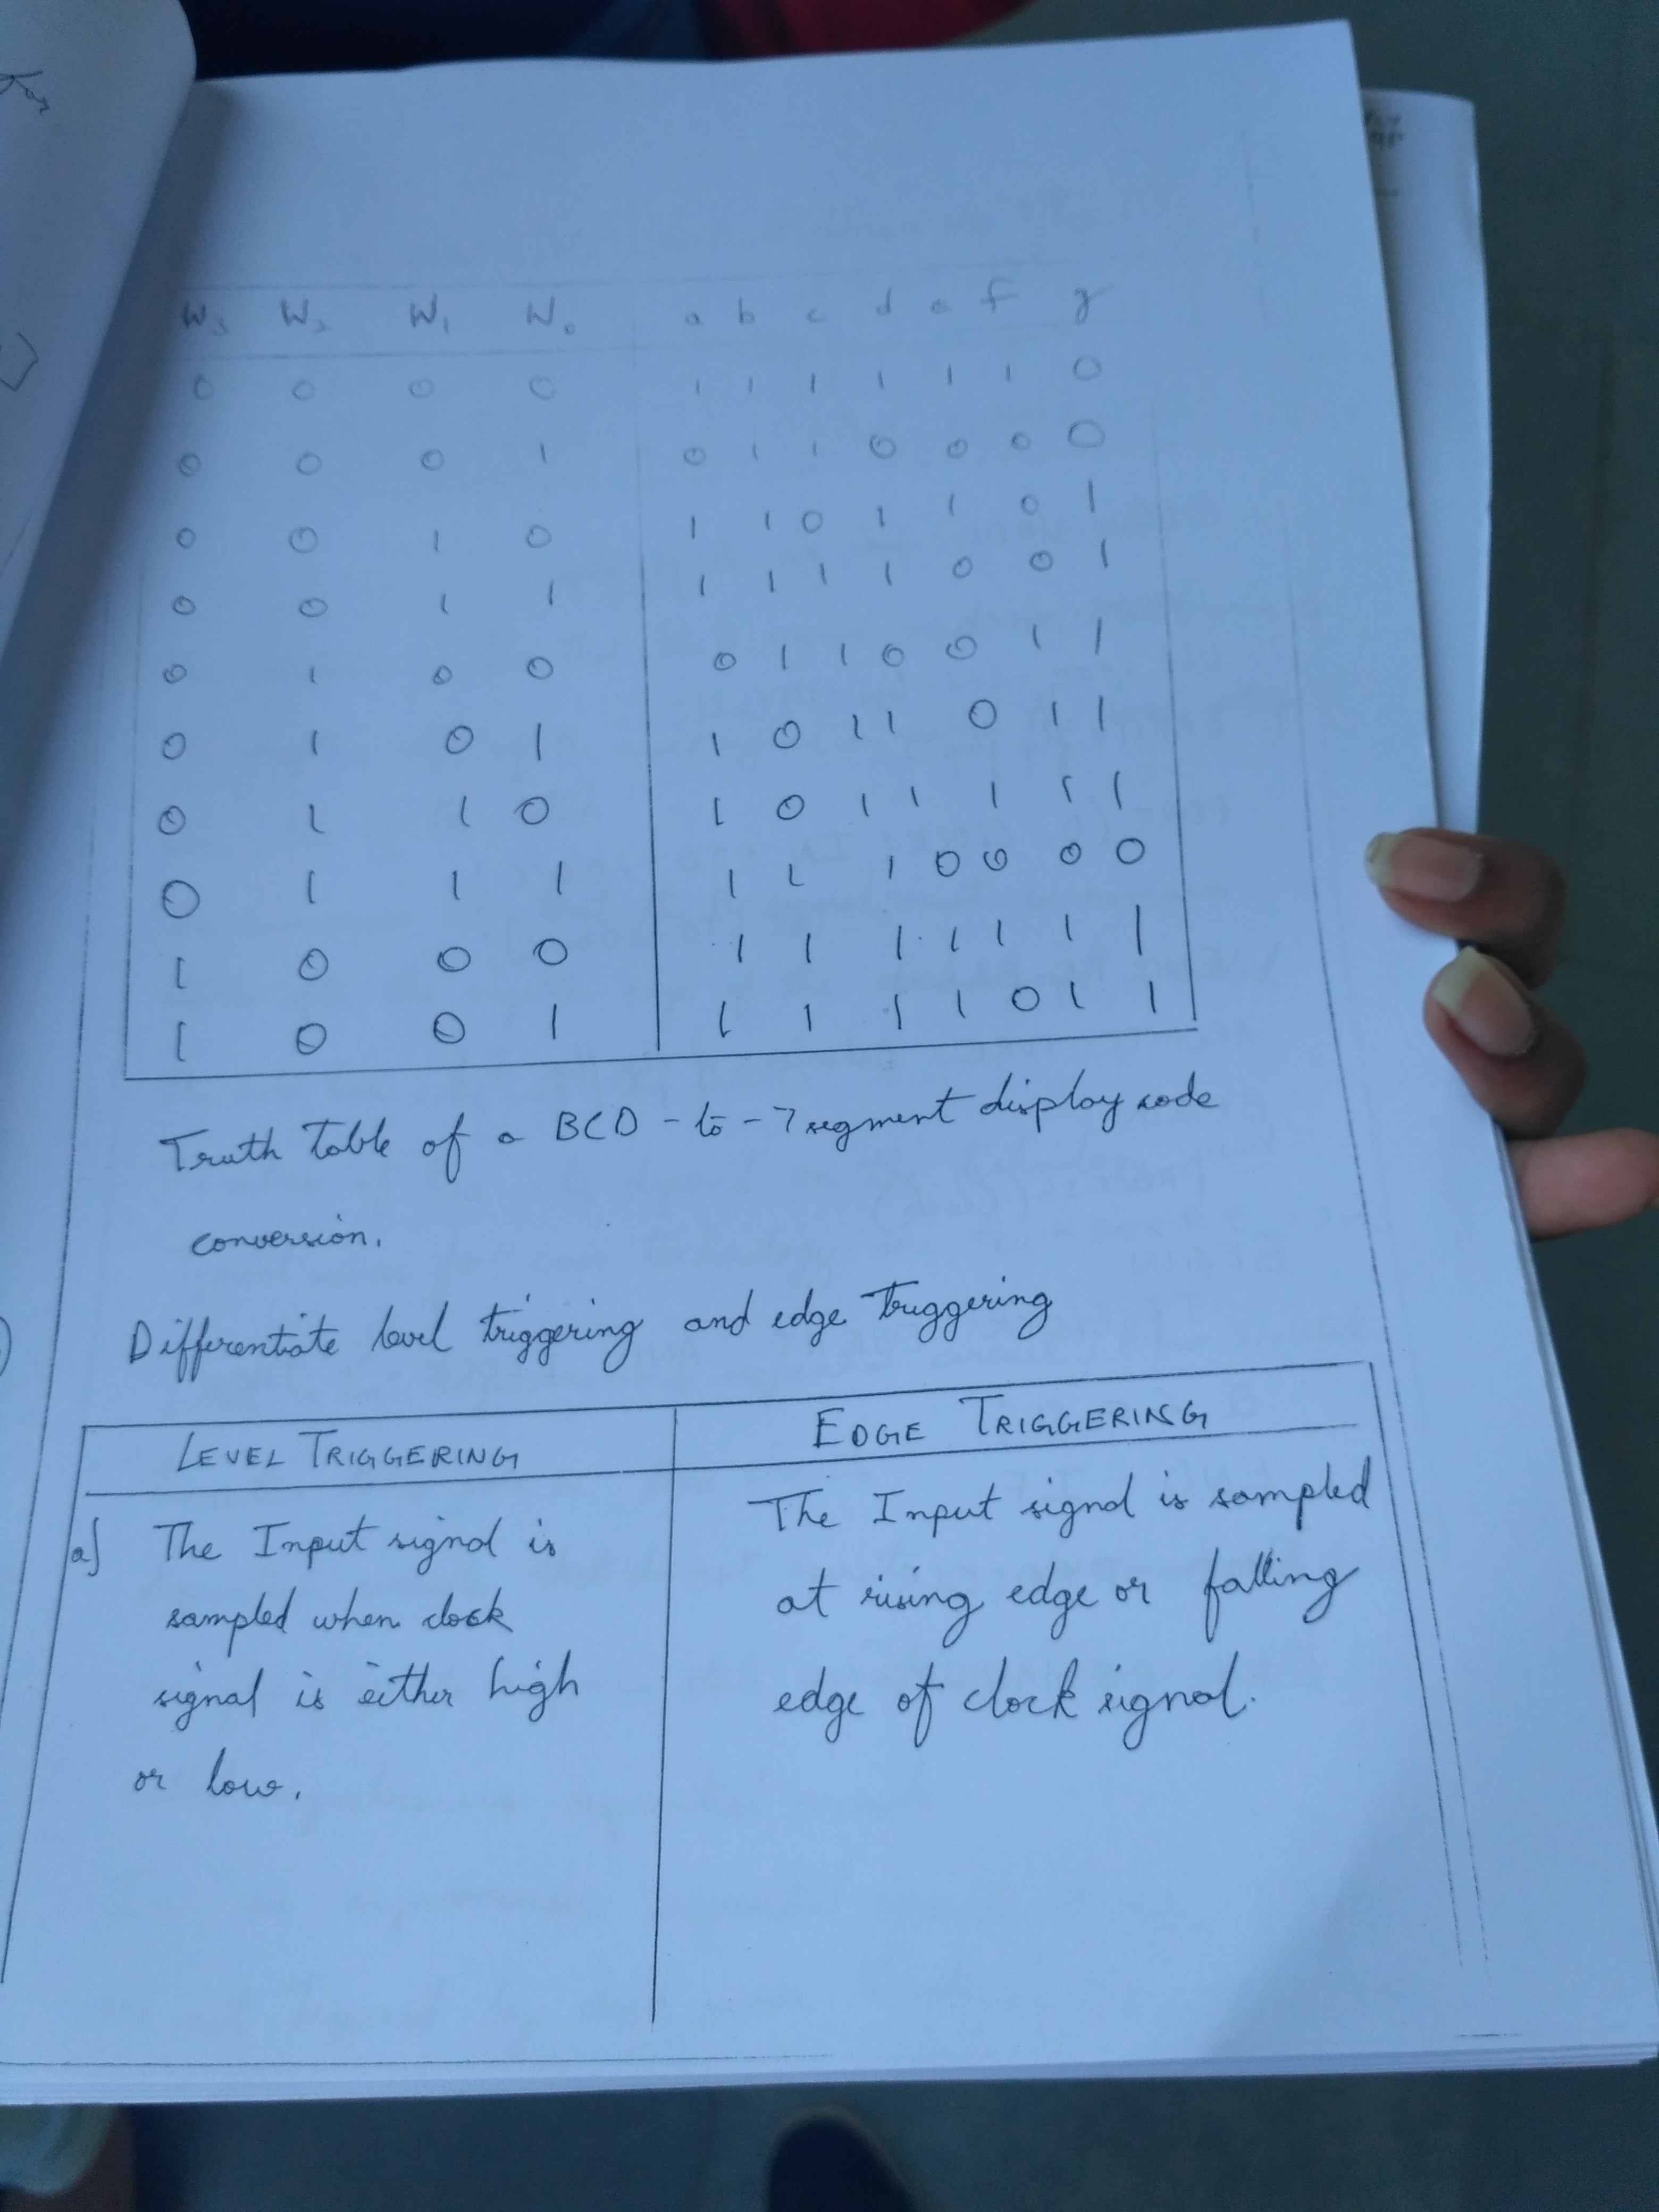 W₃ W₂ W₁ W₀ a b c d e f g
0 0 0 0 1 1 1 1 1 1 0
0 0 0 1 0 1 1 0 0 0 0
0 0 1 0 1 1 0 1 1 0 1
0 0 1 1 1 1 1 1 0 0 1
0 1 0 0 0 1 1 0 0 1 1
0 1 0 1 1 0 1 1 0 1 1
0 1 1 0 1 0 1 1 1 1 1
0 1 1 1 1 1 1 0 0 0 0
1 0 0 0 1 1 1 1 1 1 1
1 0 0 1 1 1 1 1 0 1 1
Truth Table of a BCD-to-7segment display code
conversion.
Differentiate level triggering and edge Triggering
LEVEL TRIGGERING
a) The Input signal is
sampled when clock
signal is either high
or low.
EDGE TRIGGERING
The Input signal is sampled
at rising edge or falling
edge of clock signal.